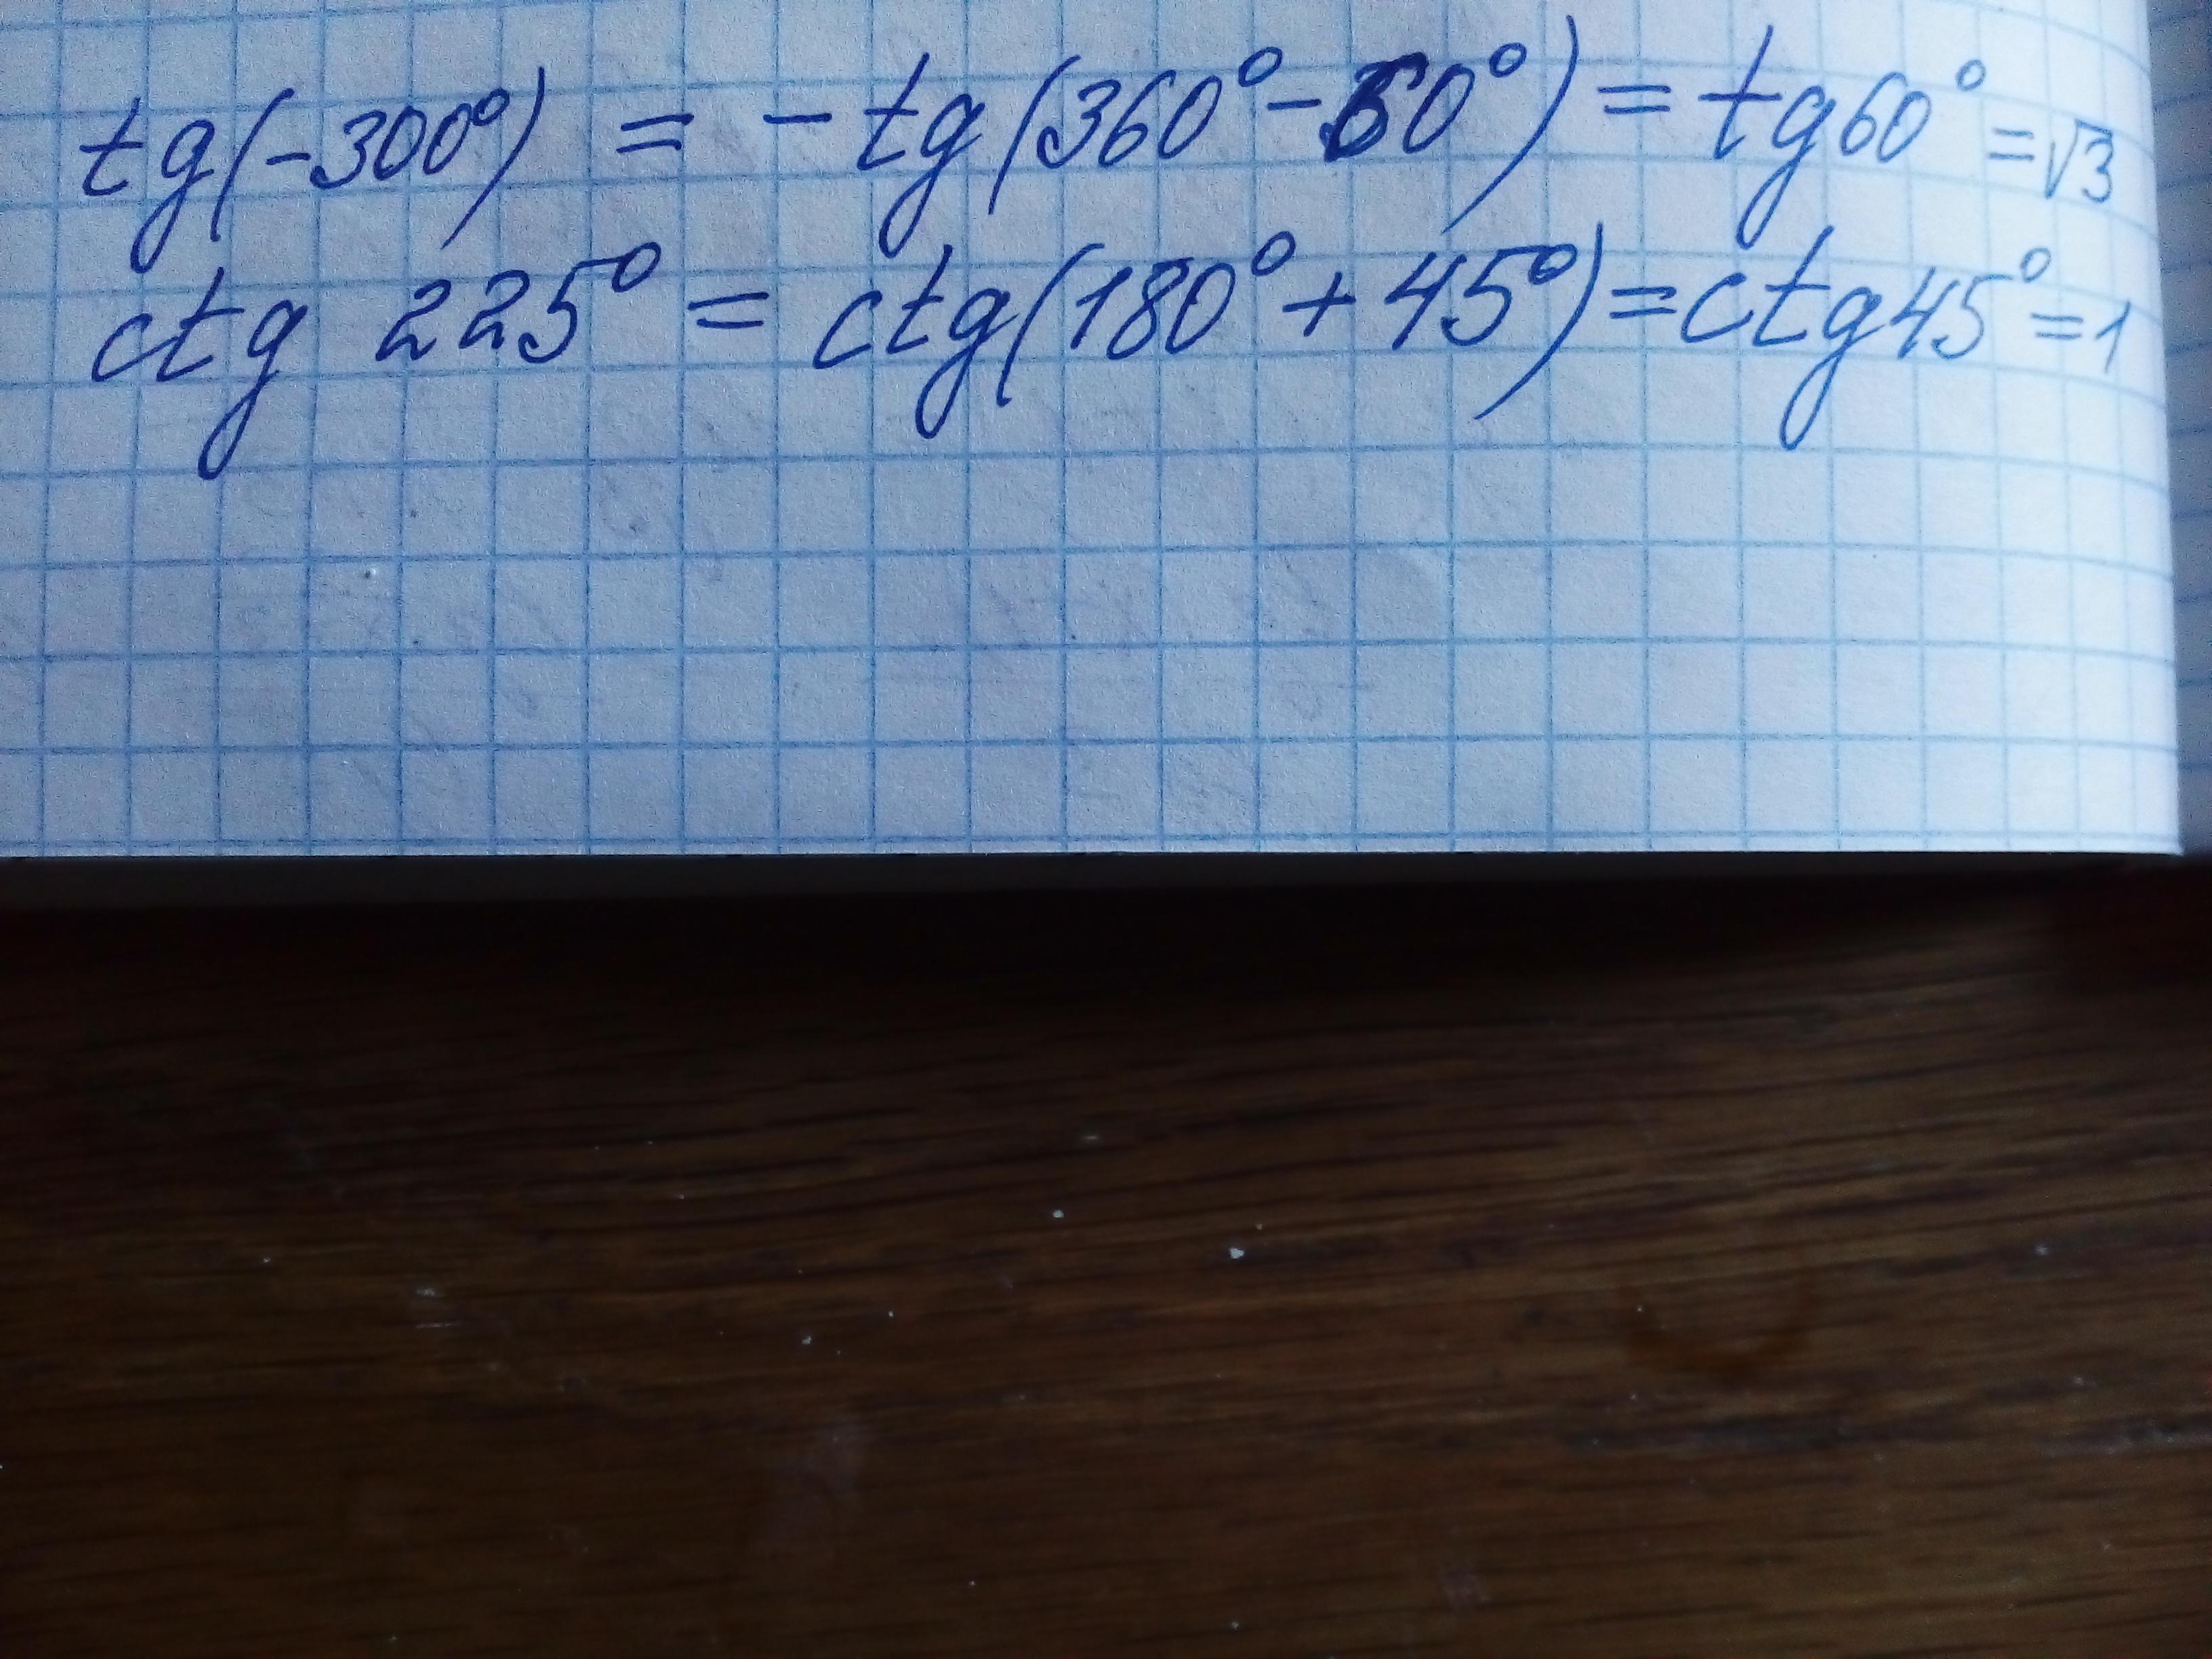 tg(-300°) = -tg(360°-60°) = tg60° = √3
ctg 225° = ctg(180°+45°) = ctg45° = 1